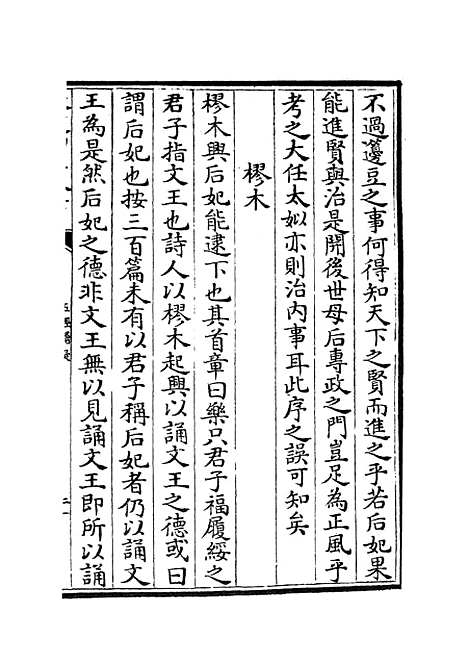 不過籩豆之事何得知天下之賢而進之乎若后妃果
能進賢與治是開後世母后專政之門豈足為正風乎
考之大任太姒亦則治内事耳此序之誤可知矣
樛木
樛木興后妃能逮下也其首章曰樂只君子福履綏之
君子指文王也詩人以樛木起興以誦文王之德或曰
謂后妃也按三百篇未有以君子稱后妃者仍以誦文
王為是然后妃之德非文王無以見誦文王即所以誦